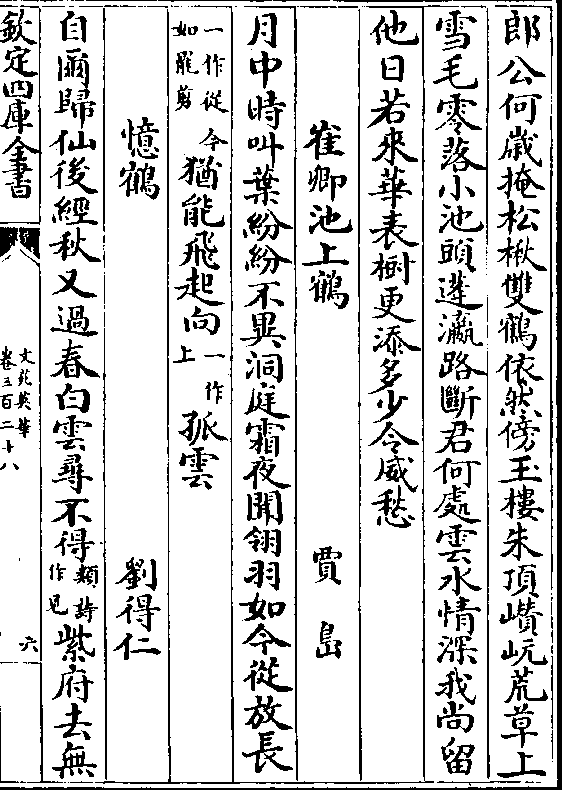 郎公何歲掩松楸雙鶴依然傍玉樓朱頂巑岏荒草上
雪毛零落小池頭蓬瀛路斷君何處雲水情深我尚留
他日若來華表樹更添多少令威愁
崔卿池上鶴 賈島
月中時叫葉紛紛不異洞庭霜夜聞翎羽如今從放長
一作從今
如罷剪
猶能飛起向
一作
上
孤雲
憶鶴 劉得仁
自爾歸仙後經秋又過春白雲尋不得
類詩
作見
紫府去無
欽定四庫全書
文苑英華
卷三百二十八
六